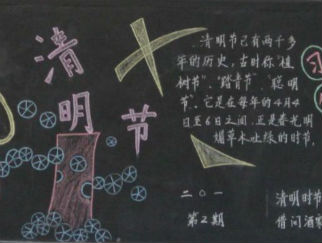 清明节
清明节已有两千多
年的历史,古时你"植
树节"、"踏青节"、"聪明
节"。它是在每年的4月4
日至6日之间,正是春光明
媚草木吐绿的时节,
二〇一
第2期
清明时节
借问酒家